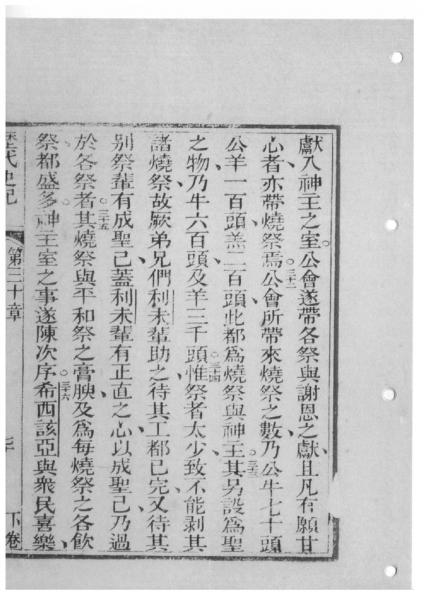 獻入神王之室公會遂帶各祭與謝恩之獻且凡有願甘
心者亦帶燒祭焉三十二公會所帶來燒祭之數乃公牛七十頭
公羊一百頭羔二百頭此都爲燒祭與神王三十三其另設爲聖
之物乃牛六百頭及羊三千頭三十四惟祭者太少致不能剥其
諸燒祭故厥弟兄們利未輩助之待其工都已完又待其
別祭輩有成聖已蓋利未輩有正直之心以成聖已乃過
於各祭者三十五其燒祭與平和祭之膏腴及爲每燒祭之各飲
祭都盛多神王室之事遂陳次序三十六希西該亞與衆民喜樂
歷代史記 第三十章 下卷